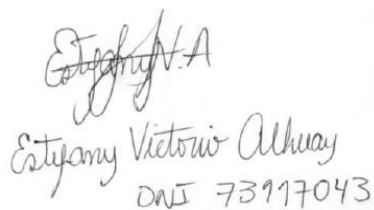 Estefany V.A
Estefany Victorio Alhuay
DNI 73917043